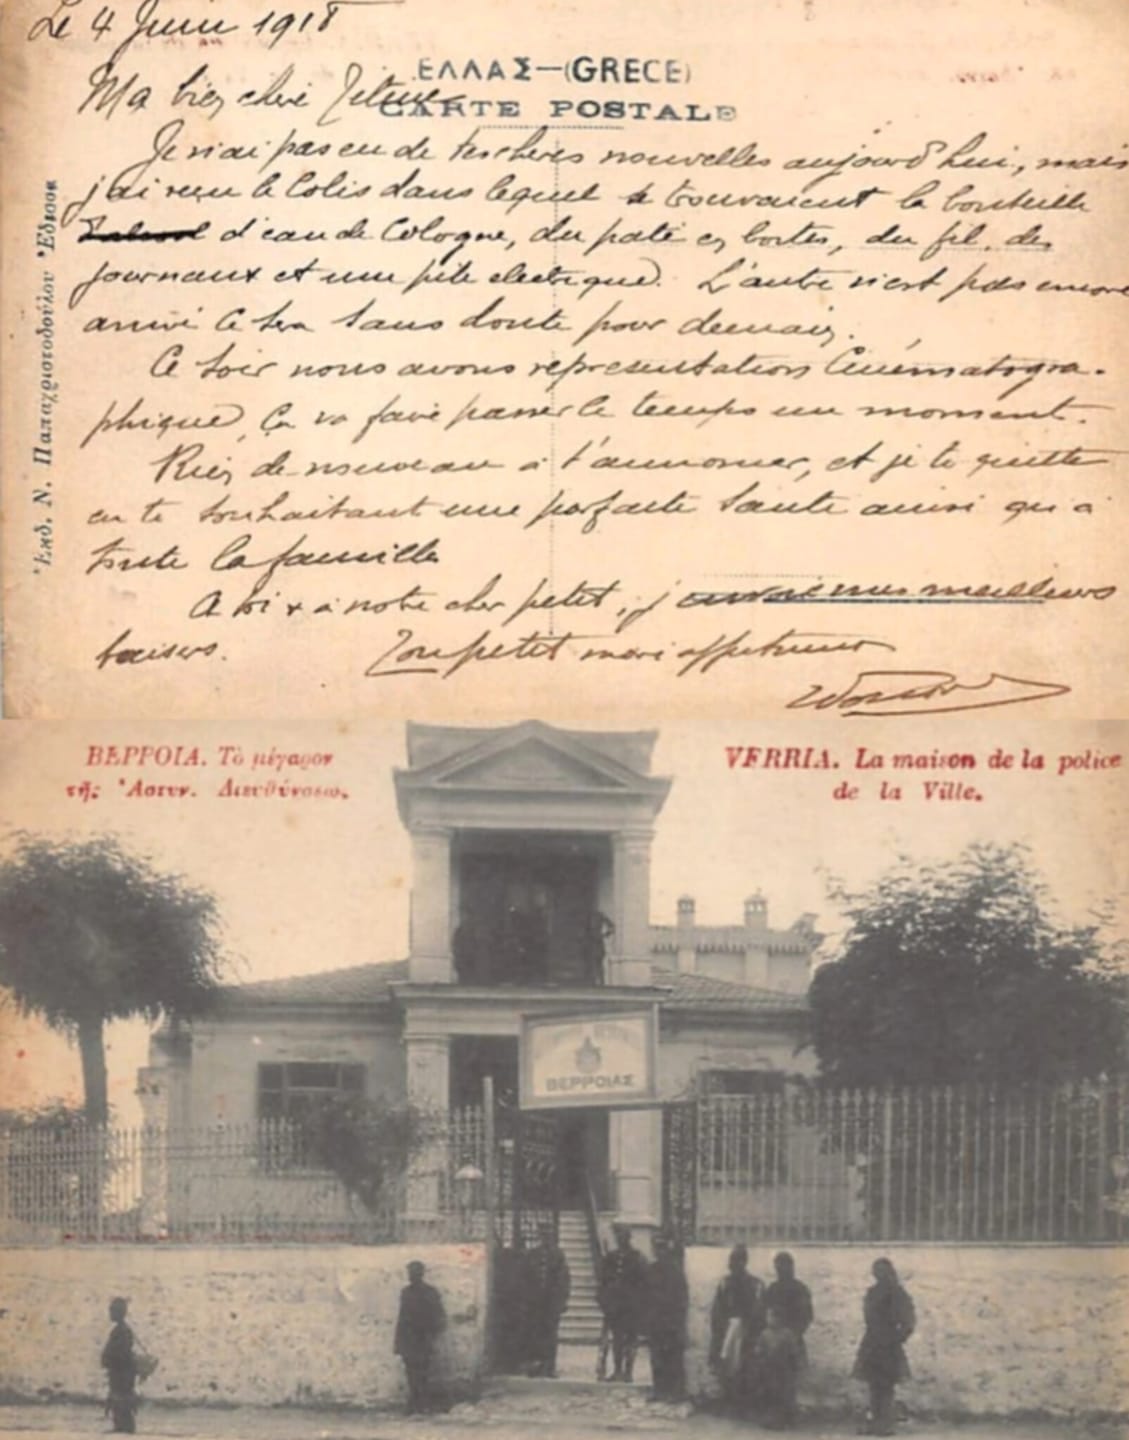 Le 4 Juin 1918
ΕΛΛΑΣ—(GRECE)
CARTE POSTALE
Ma bien chère
Je n'ai pas eu de tes chères nouvelles aujourd'hui, mais
j'ai reçu le Colis dans lequel se trouvaient la bouteille
d'eau de Cologne, du paté en boites, du fil, des
journaux et une pile electrique. L'autre n'est pas encore
arrivé ce sera sans doute pour demain.
Ce soir nous avons représentation Cinématogra-
phique, Ça va faire passer le temps un moment.
Rien de nouveau à t'annoncer, et je te quitte
en te souhaitant une parfaite santé ainsi qu'à
toute la famille
A toi & à notre cher petit, j'envoie mes meilleurs
baisers. Ton petit mari affectueux
Ἐκδ. Ν. Παπαχριστοδούλου Ἔδεσσα
ΒΕΡΡΟΙΑ. Τὸ μέγαρον
τῆς Ἀστυν. Διευθύνσεως.
VERRIA. La maison de la police
de la Ville.
ΒΕΡΡΟΙΑΣ